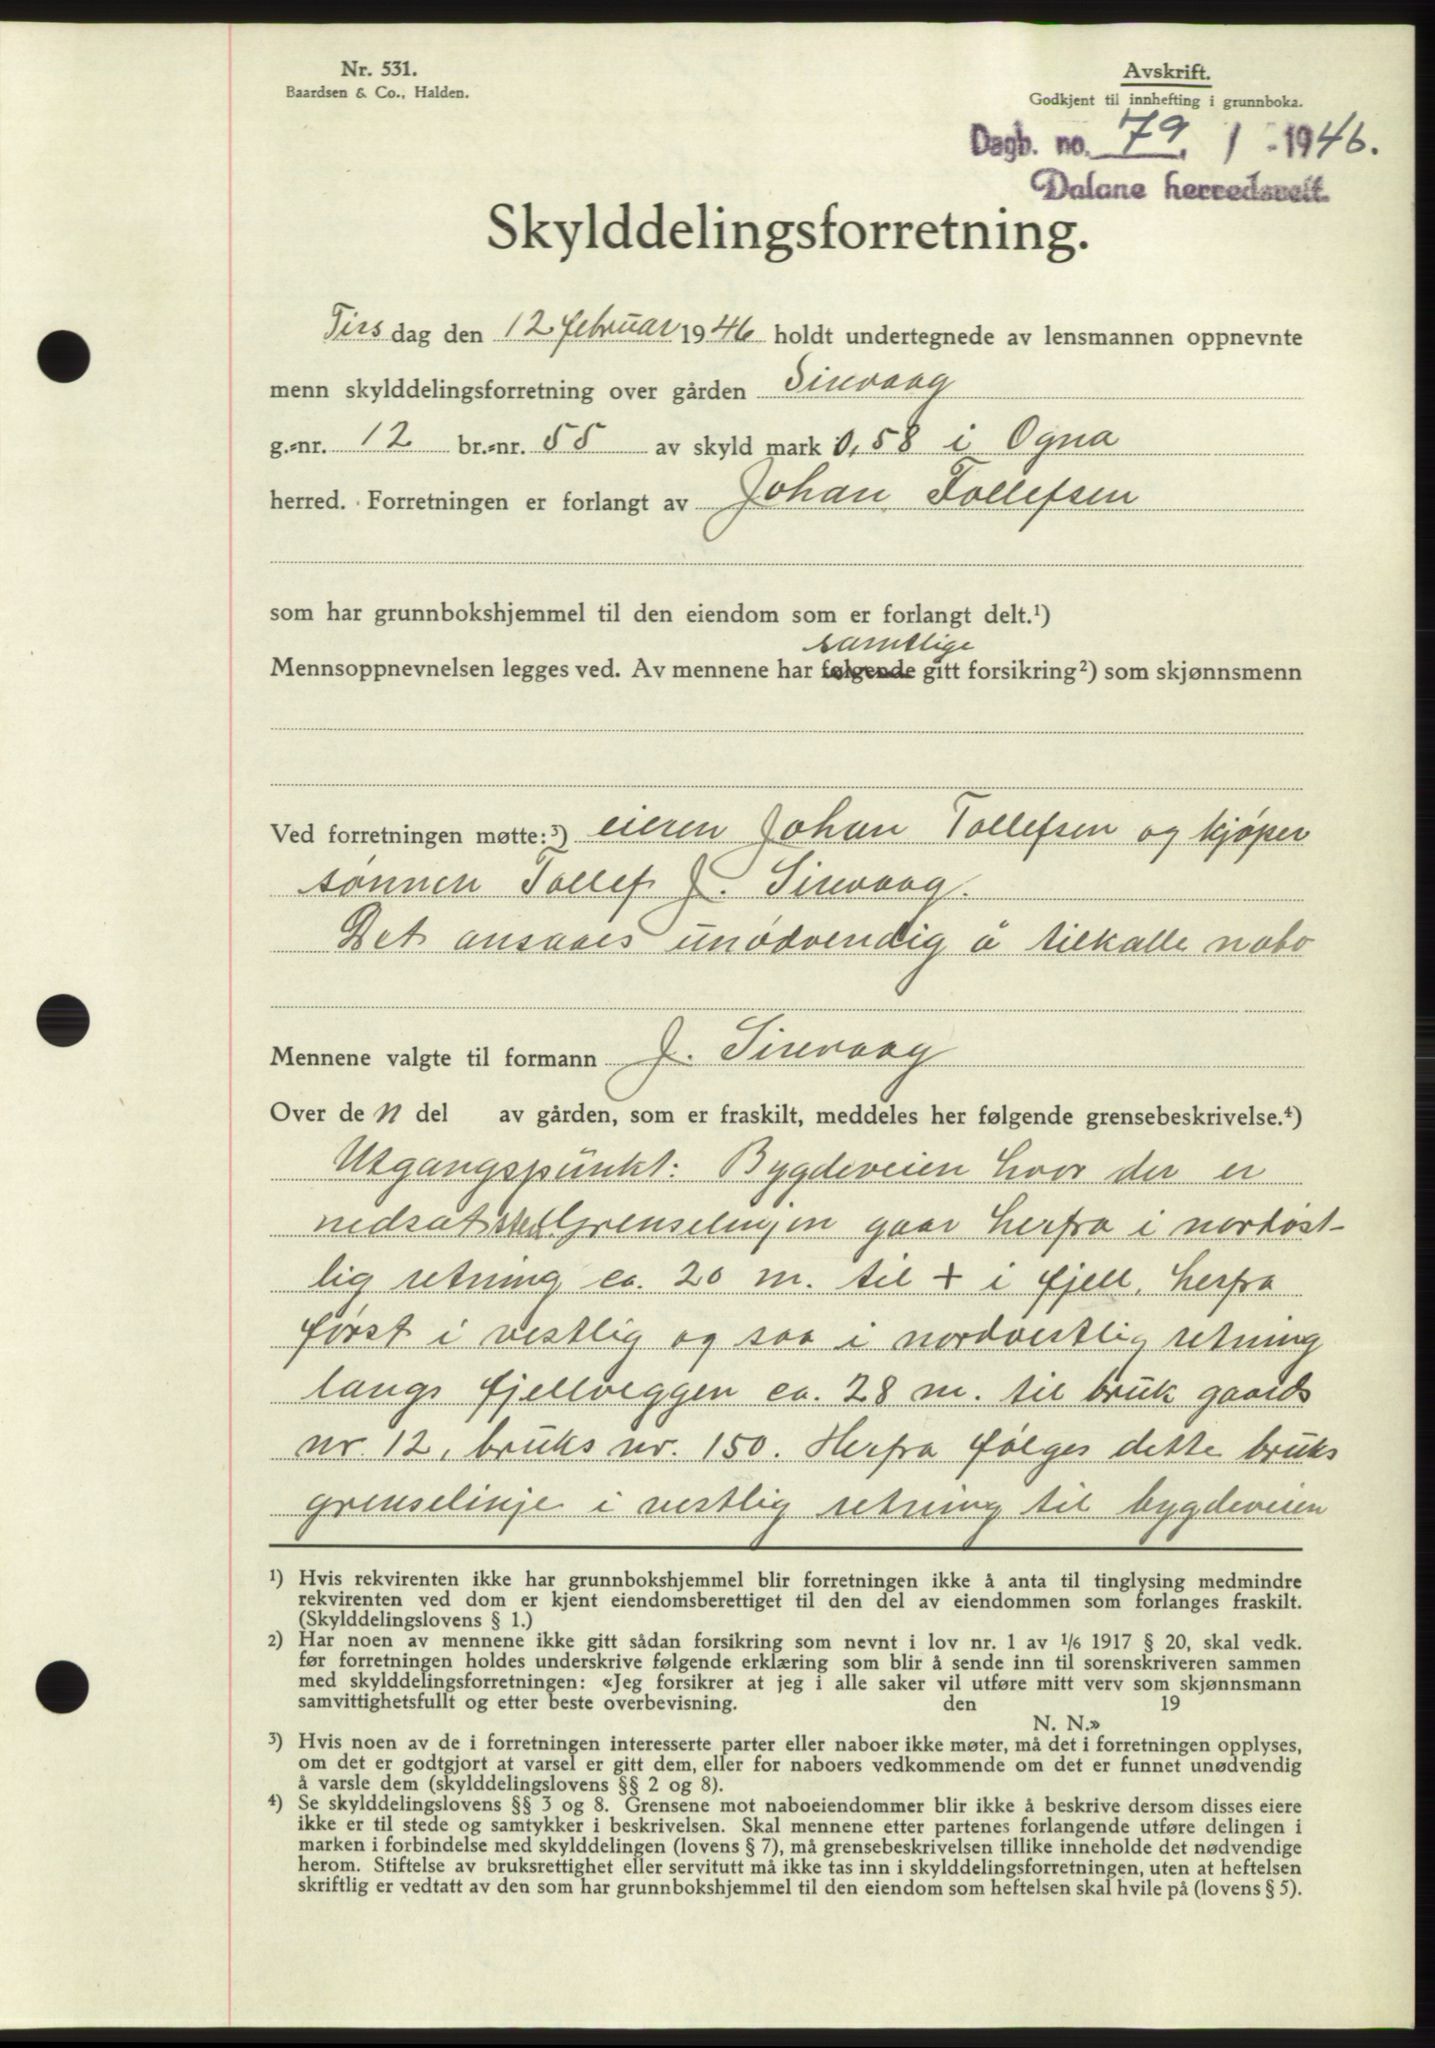 Nr. 531.
Baardsen & Co., Halden.
Avskrift.
Godkjent til innhefting i grunnboka.
Dagb. no. 79. / - 1946.
Dalane herredsrett.
Skylddelingsforretning.
Tirsdag den 12 februar 1946 holdt undertegnede av lensmannen oppnevnte
menn skylddelingsforretning over gården Sirevaag
g.-nr. 12 br.-nr. 55 av skyld mark 0,58 i Ogna
herred. Forretningen er forlangt av Johan Tollefsen
som har grunnbokshjemmel til den eiendom som er forlangt delt.¹)
samtlige
Mennsoppnevnelsen legges ved. Av mennene har følgende gitt forsikring²) som skjønnsmenn
Ved forretningen møtte:³) eieren Johan Tollefsen og kjøper
sønnen Tollef J. Sirevaag.
Det ansaaes unødvendig å tilkalle nabo
Mennene valgte til formann J. Sirevaag
Over de n del av gården, som er fraskilt, meddeles her følgende grensebeskrivelse.⁴)
Utgangspunkt: Bygdeveien hvor der er
nedsat sten. Grenselinjen gaar herfra i nordøst-
lig retning ca. 20 m. til + i fjell, herfra
først i vestlig og saa i nordvestlig retning
langs fjellveggen ca. 28 m. til bruk gaards
nr. 12, bruks nr. 150. Herfra følges dette bruks
grenselinje i vestlig retning til bygdeveien
¹) Hvis rekvirenten ikke har grunnbokshjemmel blir forretningen ikke å anta til tinglysing medmindre
rekvirenten ved dom er kjent eiendomsberettiget til den del av eiendommen som forlanges fraskilt.
(Skylddelingslovens § 1.)
²) Har noen av mennene ikke gitt sådan forsikring som nevnt i lov nr. 1 av 1/6 1917 § 20, skal vedk.
før forretningen holdes underskrive følgende erklæring som blir å sende inn til sorenskriveren sammen
med skylddelingsforretningen: «Jeg forsikrer at jeg i alle saker vil utføre mitt verv som skjønnsmann
samvittighetsfullt og etter beste overbevisning. den 19
N. N.»
³) Hvis noen av de i forretningen interesserte parter eller naboer ikke møter, må det i forretningen opplyses,
om det er godtgjort at varsel er gitt dem, eller for naboers vedkommende om det er funnet unødvendig
å varsle dem (skylddelingslovens §§ 2 og 8).
⁴) Se skylddelingslovens §§ 3 og 8. Grensene mot naboeiendommer blir ikke å beskrive dersom disses eiere
ikke er til stede og samtykker i beskrivelsen. Skal mennene etter partenes forlangende utføre delingen i
marken i forbindelse med skylddelingen (lovens § 7), må grensebeskrivelsen tillike inneholde det nødvendige
herom. Stiftelse av bruksrettighet eller servitutt må ikke tas inn i skylddelingsforretningen, uten at heftelsen
skriftlig er vedtatt av den som har grunnbokshjemmel til den eiendom som heftelsen skal hvile på (lovens § 5).